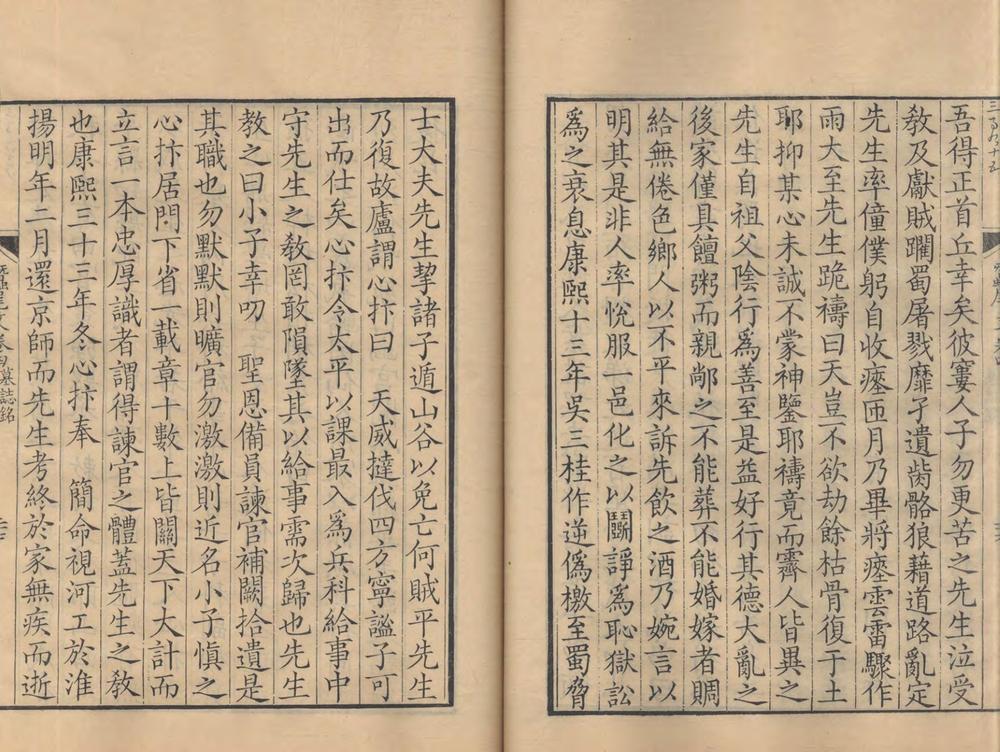 吾得正首丘幸矣彼寠人子勿更苦之先生泣受
敎及獻賊躙蜀屠戮靡孑遺胔骼狼藉道路亂定
先生率僮僕躬自收瘞匝月乃畢將瘞雲雷驟作
雨大至先生跪禱曰天豈不欲劫餘枯骨復于土
耶抑某心未誠不蒙神鑒耶禱竟而霽人皆異之
先生自祖父陰行爲善至是益好行其德大亂之
後家僅具饘粥而親鄰之不能葬不能婚嫁者賙
給無倦色鄉人以不平來訴先飲之酒乃婉言以
明其是非人率悅服一邑化之以鬭諍爲恥獄訟
爲之衰息康熙十三年吳三桂作逆僞檄至蜀脅
士大夫先生挈諸子遁山谷以免亡何賊平先生
乃復故廬謂心抃曰 天威撻伐四方寧謐子可
出而仕矣心抃令太平以課最入爲兵科給事中
守先生之敎罔敢隕墜其以給事需次歸也先生
教之曰小子幸叨 聖恩備員諫官補闕拾遺是
其職也勿默默則曠官勿激激則近名小子愼之
心抃居門下省一載章十數上皆關天下大計而
立言一本忠厚識者謂得諫官之體蓋先生之敎
也康熙三十三年冬心抃奉 簡命視河工於淮
揚明年二月還京師而先生考終於家無疾而逝
墓誌銘